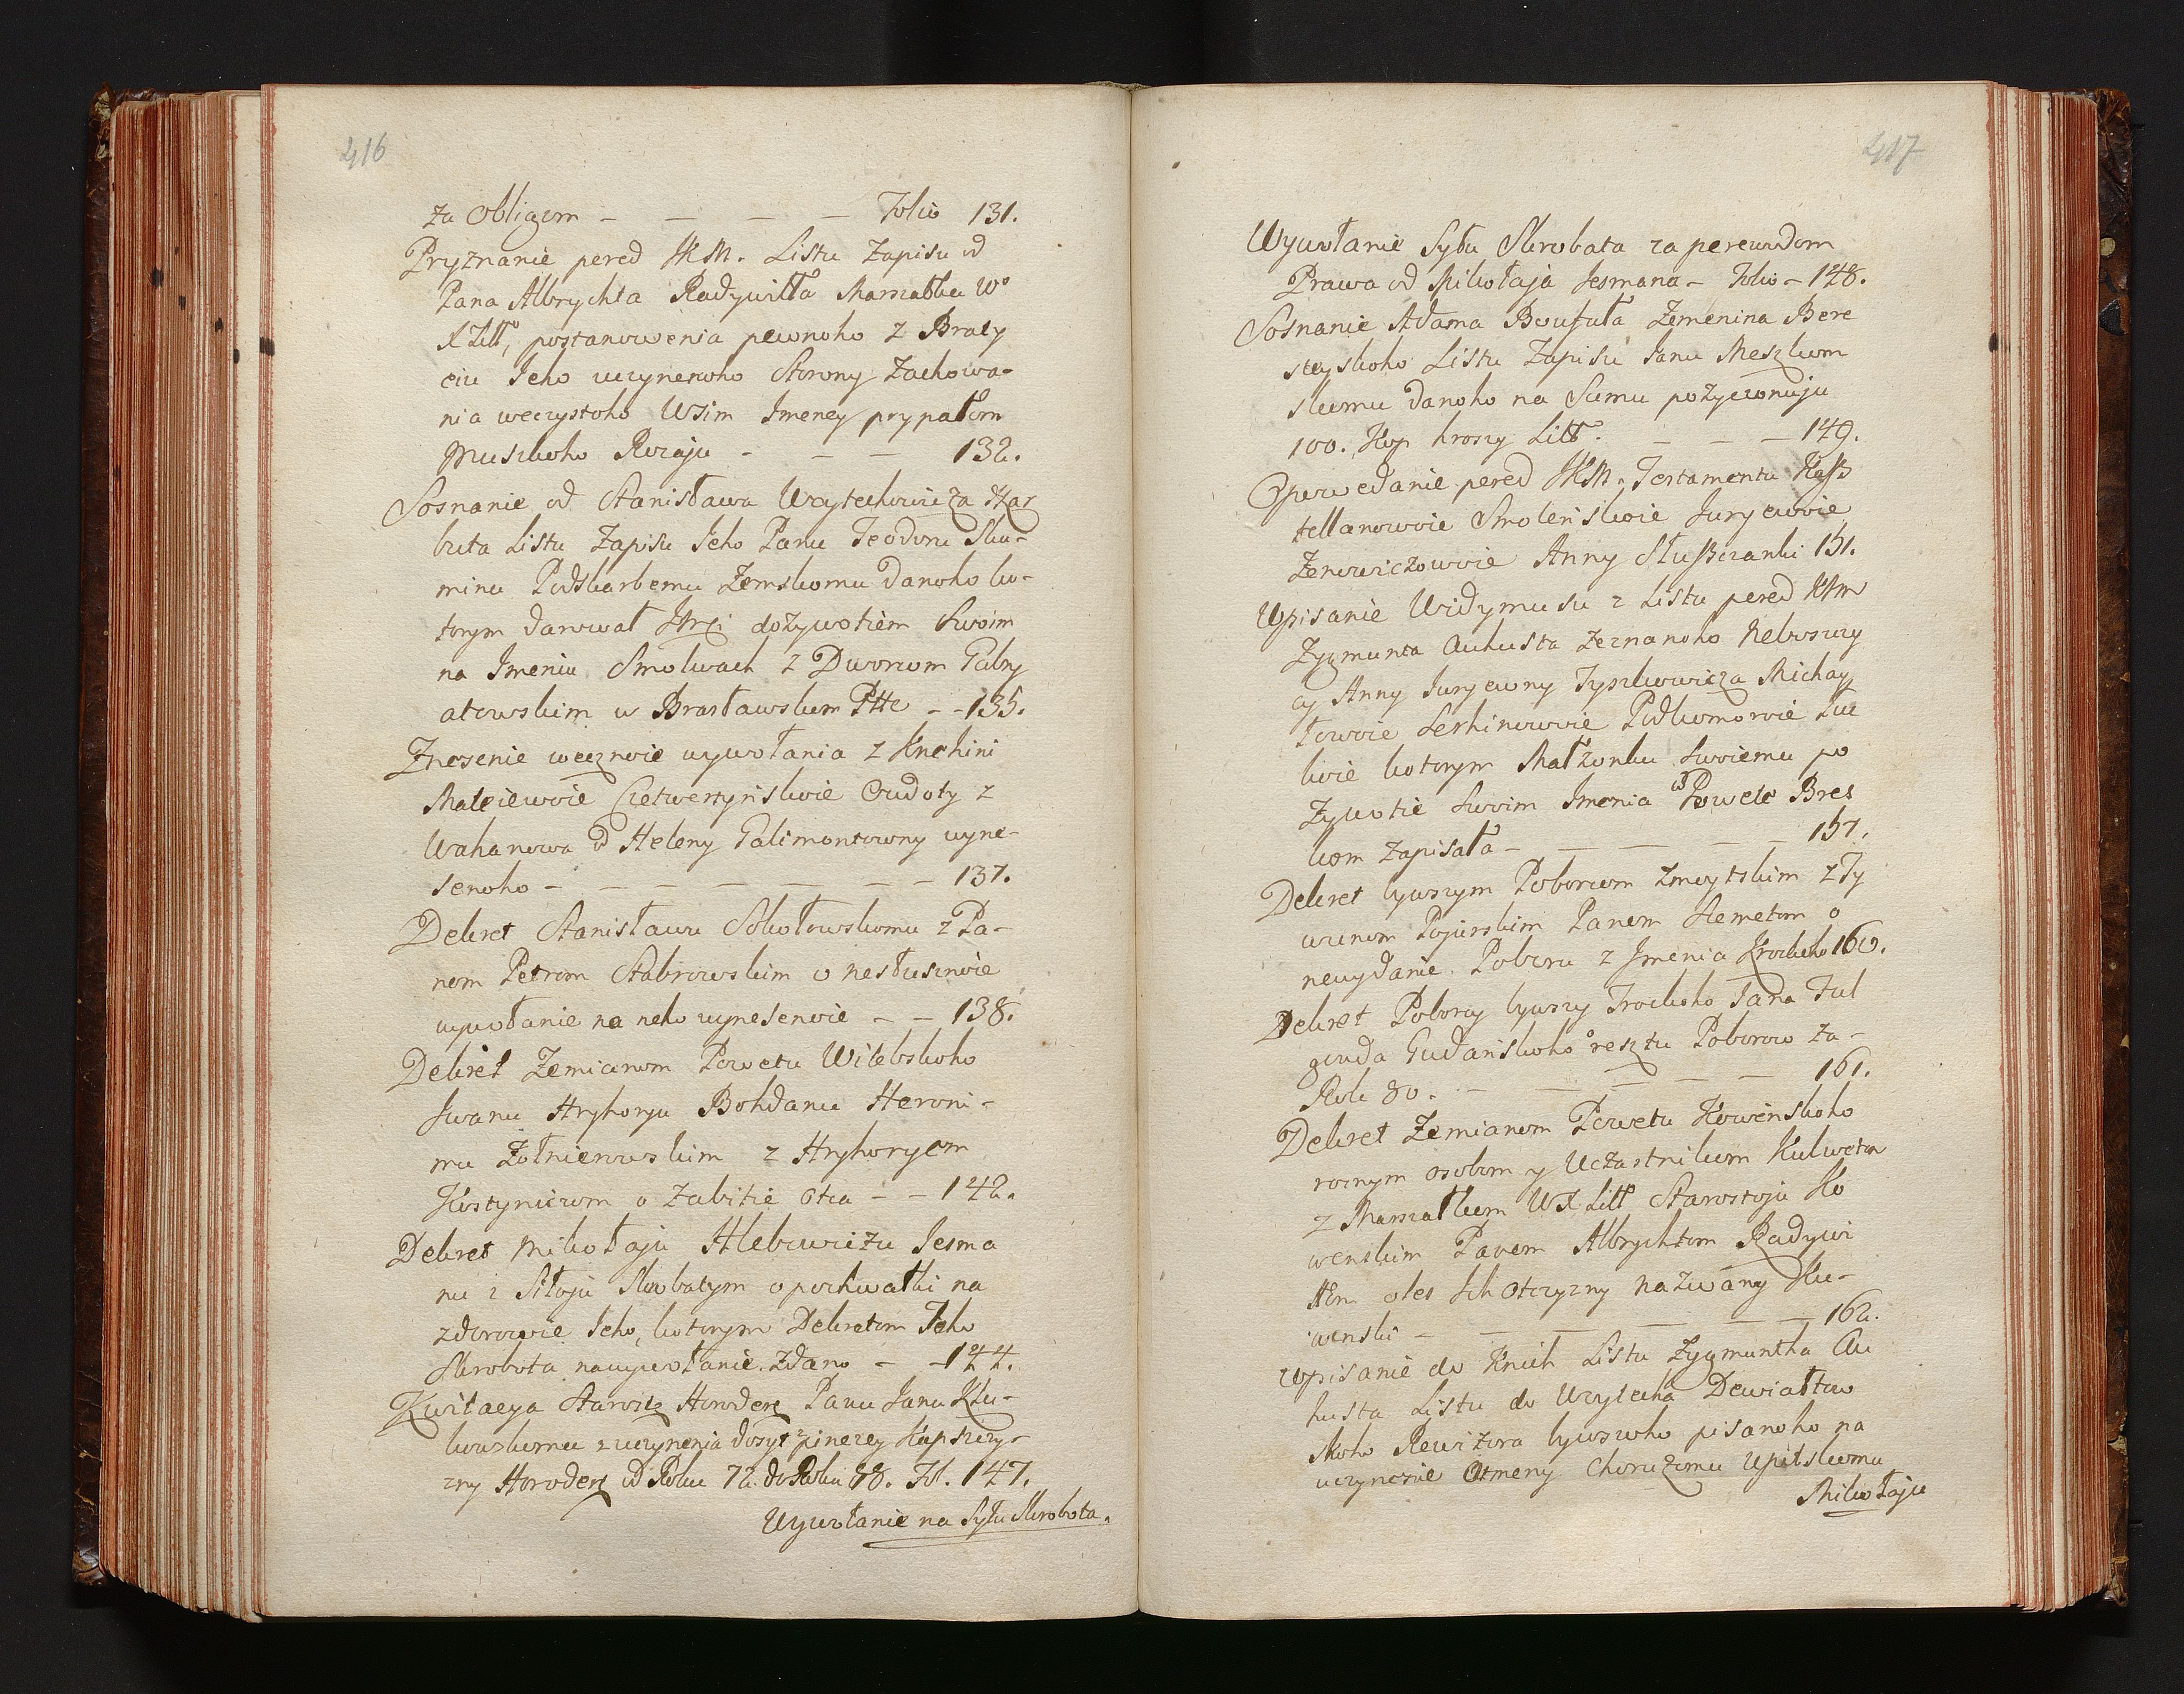 416
za Obligom - - - - Folio 131.
Pryznanie pered JKM. Listu Zapisu od
Pana Albrychta Radywiłła Marszałka Wo
X Litt, postanowenia pewnoho z Braty
eiu Jeho uczynenoho Storony Zachowa-
nia weczystoho Wsim Imeney prypałom
Muszkoho Rozaju - - - 132.
Sosnanie od Stanisława Woytechowicza Kar
buta Listu Zapisu Jeho Panu Teodoru Sku-
minu Podskarbemu Zemskomu danoho ko-
torym darował dożywotiem Swoim
na Imeniu Smolwach z Dworcom Gabry
alowskim w Brasławskum Ptte - - 135.
Znesenie wecznoie wywołania z Knehini
Mateiewoie Czetwertyńskoie Oudoty z
Wahanowa od Heleny Galimontowny wyne-
senoho - - - - - - - 137.
Dekret Stanisławu Sokołowskomu z Pa-
nom Petrom Stabrowskim o nesłusznoie
wywołanie na neho wynesenoie - - 138.
Dekret Zemianom Powetu Witebskoho
Iwanu Hryhoryu Bohdanu Heroni-
mu Żołnierowskim z Hryhoryem
Kostyniczom o Zabitie Otca - - 142.
Dekret Mikołaju Hlebowiczu Jesma
nu z Siłoju Skrobatym o pochwałki na
zdorowie Jeho, kotorym Dekretom Jeho
Skrobota na wywołanie Zdano - - 144.
Kwitacya Starosty Horoden Panu Janu Klu-
kowskomu z uczynenia dosyt z pinezey Kapszczy-
zny Horoden od Roku 72. do Roku 88. Fol. 147.
Wywołanie na Syłu Skrobota.
417
Wywołanie Syłu Skrobata za perewodom
Prawa od Mikołaja Jesmana - Folio - 148.
Sosnanie Adama Boufała Zemenina Bere
steyskoho Listu Zapisu Janu Meszkom
skomu danoho na Sumu pożyczonuju
100. Kop hroszy Litt. - - - 149.
Opowedanie pered JKM. Testamentu Kasz
tellanowoie Smoleńskoie Juryewoie
Zenowiczowoie Anny Słuszczanki 151.
Upisanie Widymusu z Listu pered KJM
Zygmunta Auhusta Zeznanoho Neboszczy
cy Anny Juryewny Tyszkowicza Michay
łowoie Serhinowoie Podkomoroie Łuc
koie kotorym Małżonku Swoiemu po
Żywotie Swoim Imenia w Powete Bres
kom Zapisała - - - - - 157.
Dekret bywszym Poborcom Zmoytskim z Ty
wunom Pojurskim Panem Semetom o
newydanie Poboru z Imenia Krockoho 160.
Dekret Poborcy bywszy Trockoho Jana Ful
genda Gudańskoho o resztu Poborow za-
Rok 80. - - - - - 161.
Dekret Zemianom Powetu Kowenskoho
roznym osobom y Uczastnikom Kulwetom
z Marszałkom WX Litt Starostoju Ko
wenskim Panem Albrychtom Radywi
łłom o les Ich Otczyzny nazwany Ku-
wenski - - - - - 162.
Upisanie do Knih Listu Zygmuntha Au
husta Listu do Woytecha Dewiałtow
skoho Rewizora bywszoho pisanoho na
uczynenie Otmeny Choruzomu Upitskomu
Mikołaju